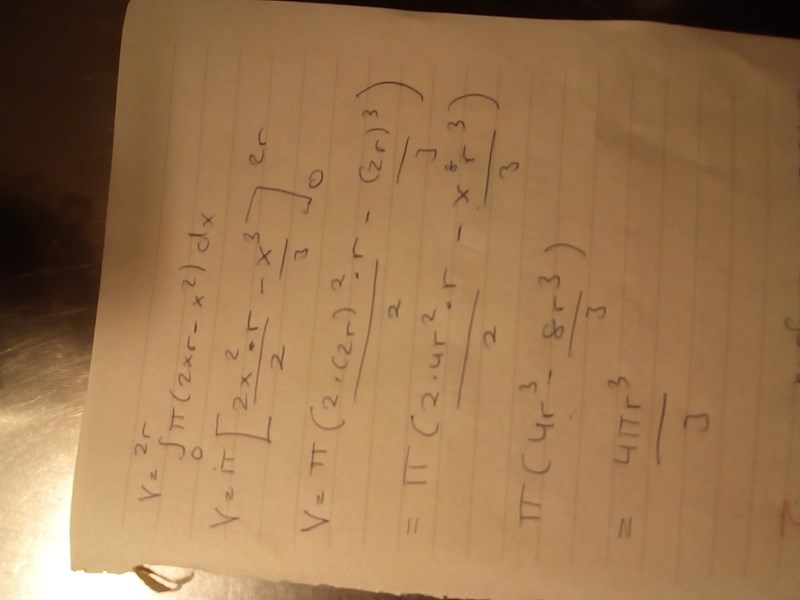 V = ∫₀²ʳ π(2xr - x²) dx
V = π [2x²/2 · r - x³/3]₀²ʳ
V = π (2·(2r)²/2 · r - (2r)³/3)
= π (2·4r²/2 · r - x⁸r³/3)
π (4r³ - 8r³/3)
= 4πr³/3